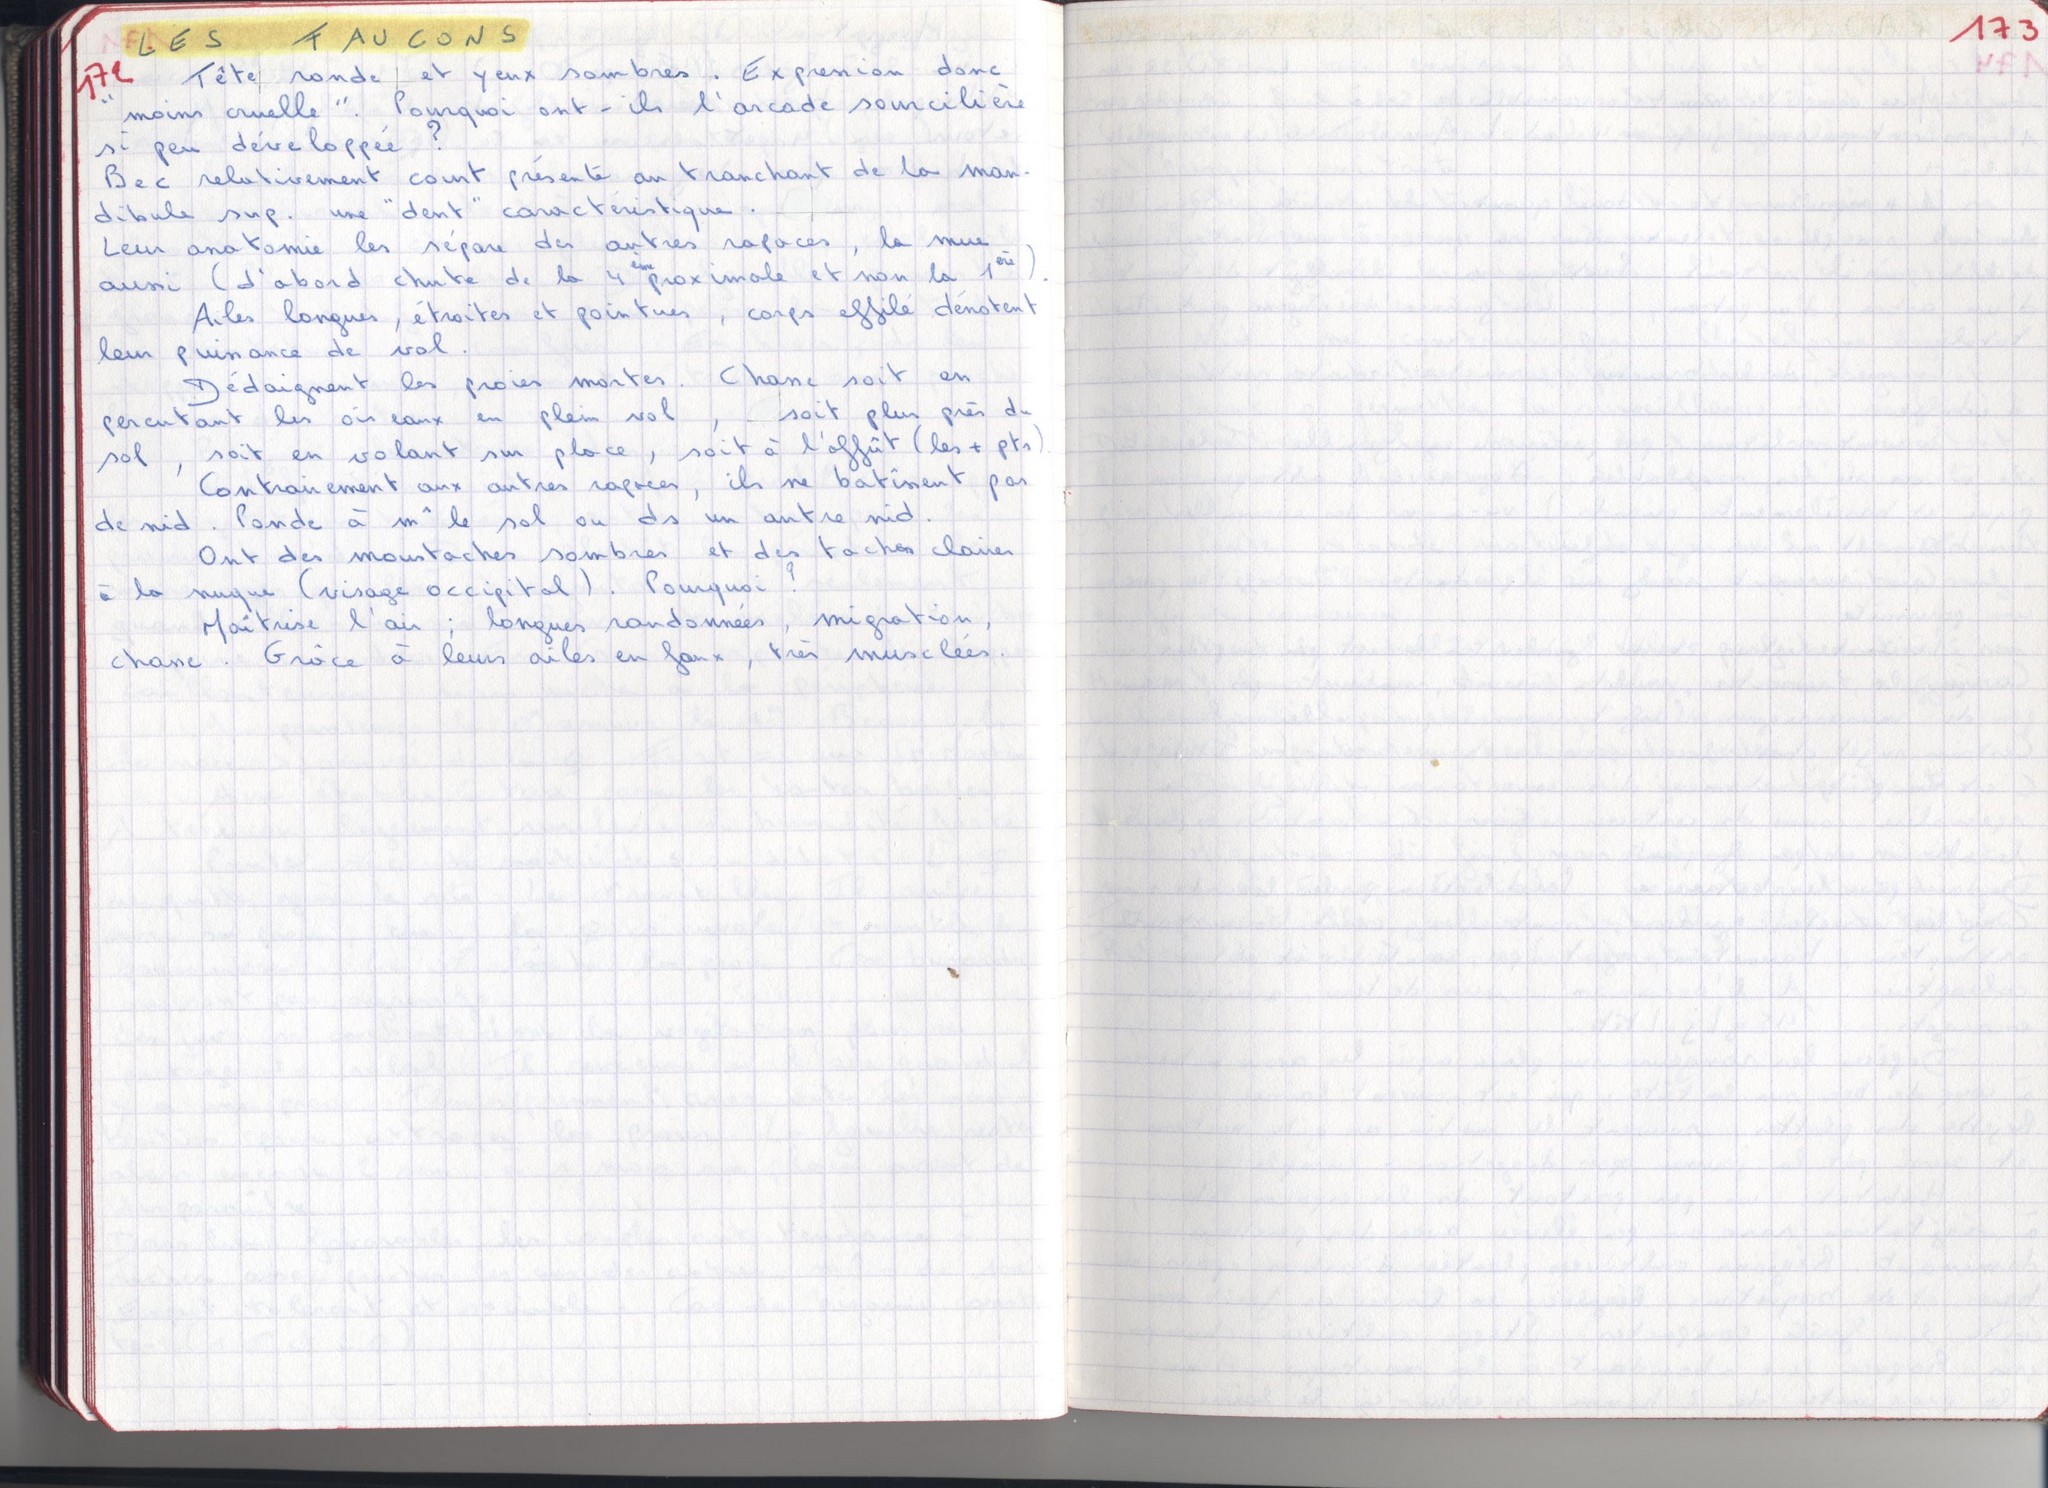 LES FAUCONS
172
Tête ronde et yeux sombres. Expression donc
"moins cruelle". Pourquoi ont-ils l'arcade sourcilière
si peu développée ?
Bec relativement court présente au tranchant de la man-
dibule sup. une "dent" caractéristique.
Leur anatomie les sépare des autres rapaces, la mue
aussi (d'abord chute de la 4ème proximale et non la 1ère).
Ailes longues, étroites et pointues, corps effilé dénotent
leur puissance de vol.
Dédaignent les proies mortes. Chasse soit en
percutant les oiseaux en plein vol, soit plus près du
sol, soit en volant sur place, soit à l'affût (les + pts)
Contrairement aux autres rapaces, ils ne batîssent pas
de nid. Ponde à m^ le sol ou ds un autre nid.
Ont des moustaches sombres et des taches claires
à la nuque (visage occipital). Pourquoi ?
Maîtrise l'air ; longues randonnées, migration,
chasse. Grâce à leurs ailes en faux, très musclées.
173